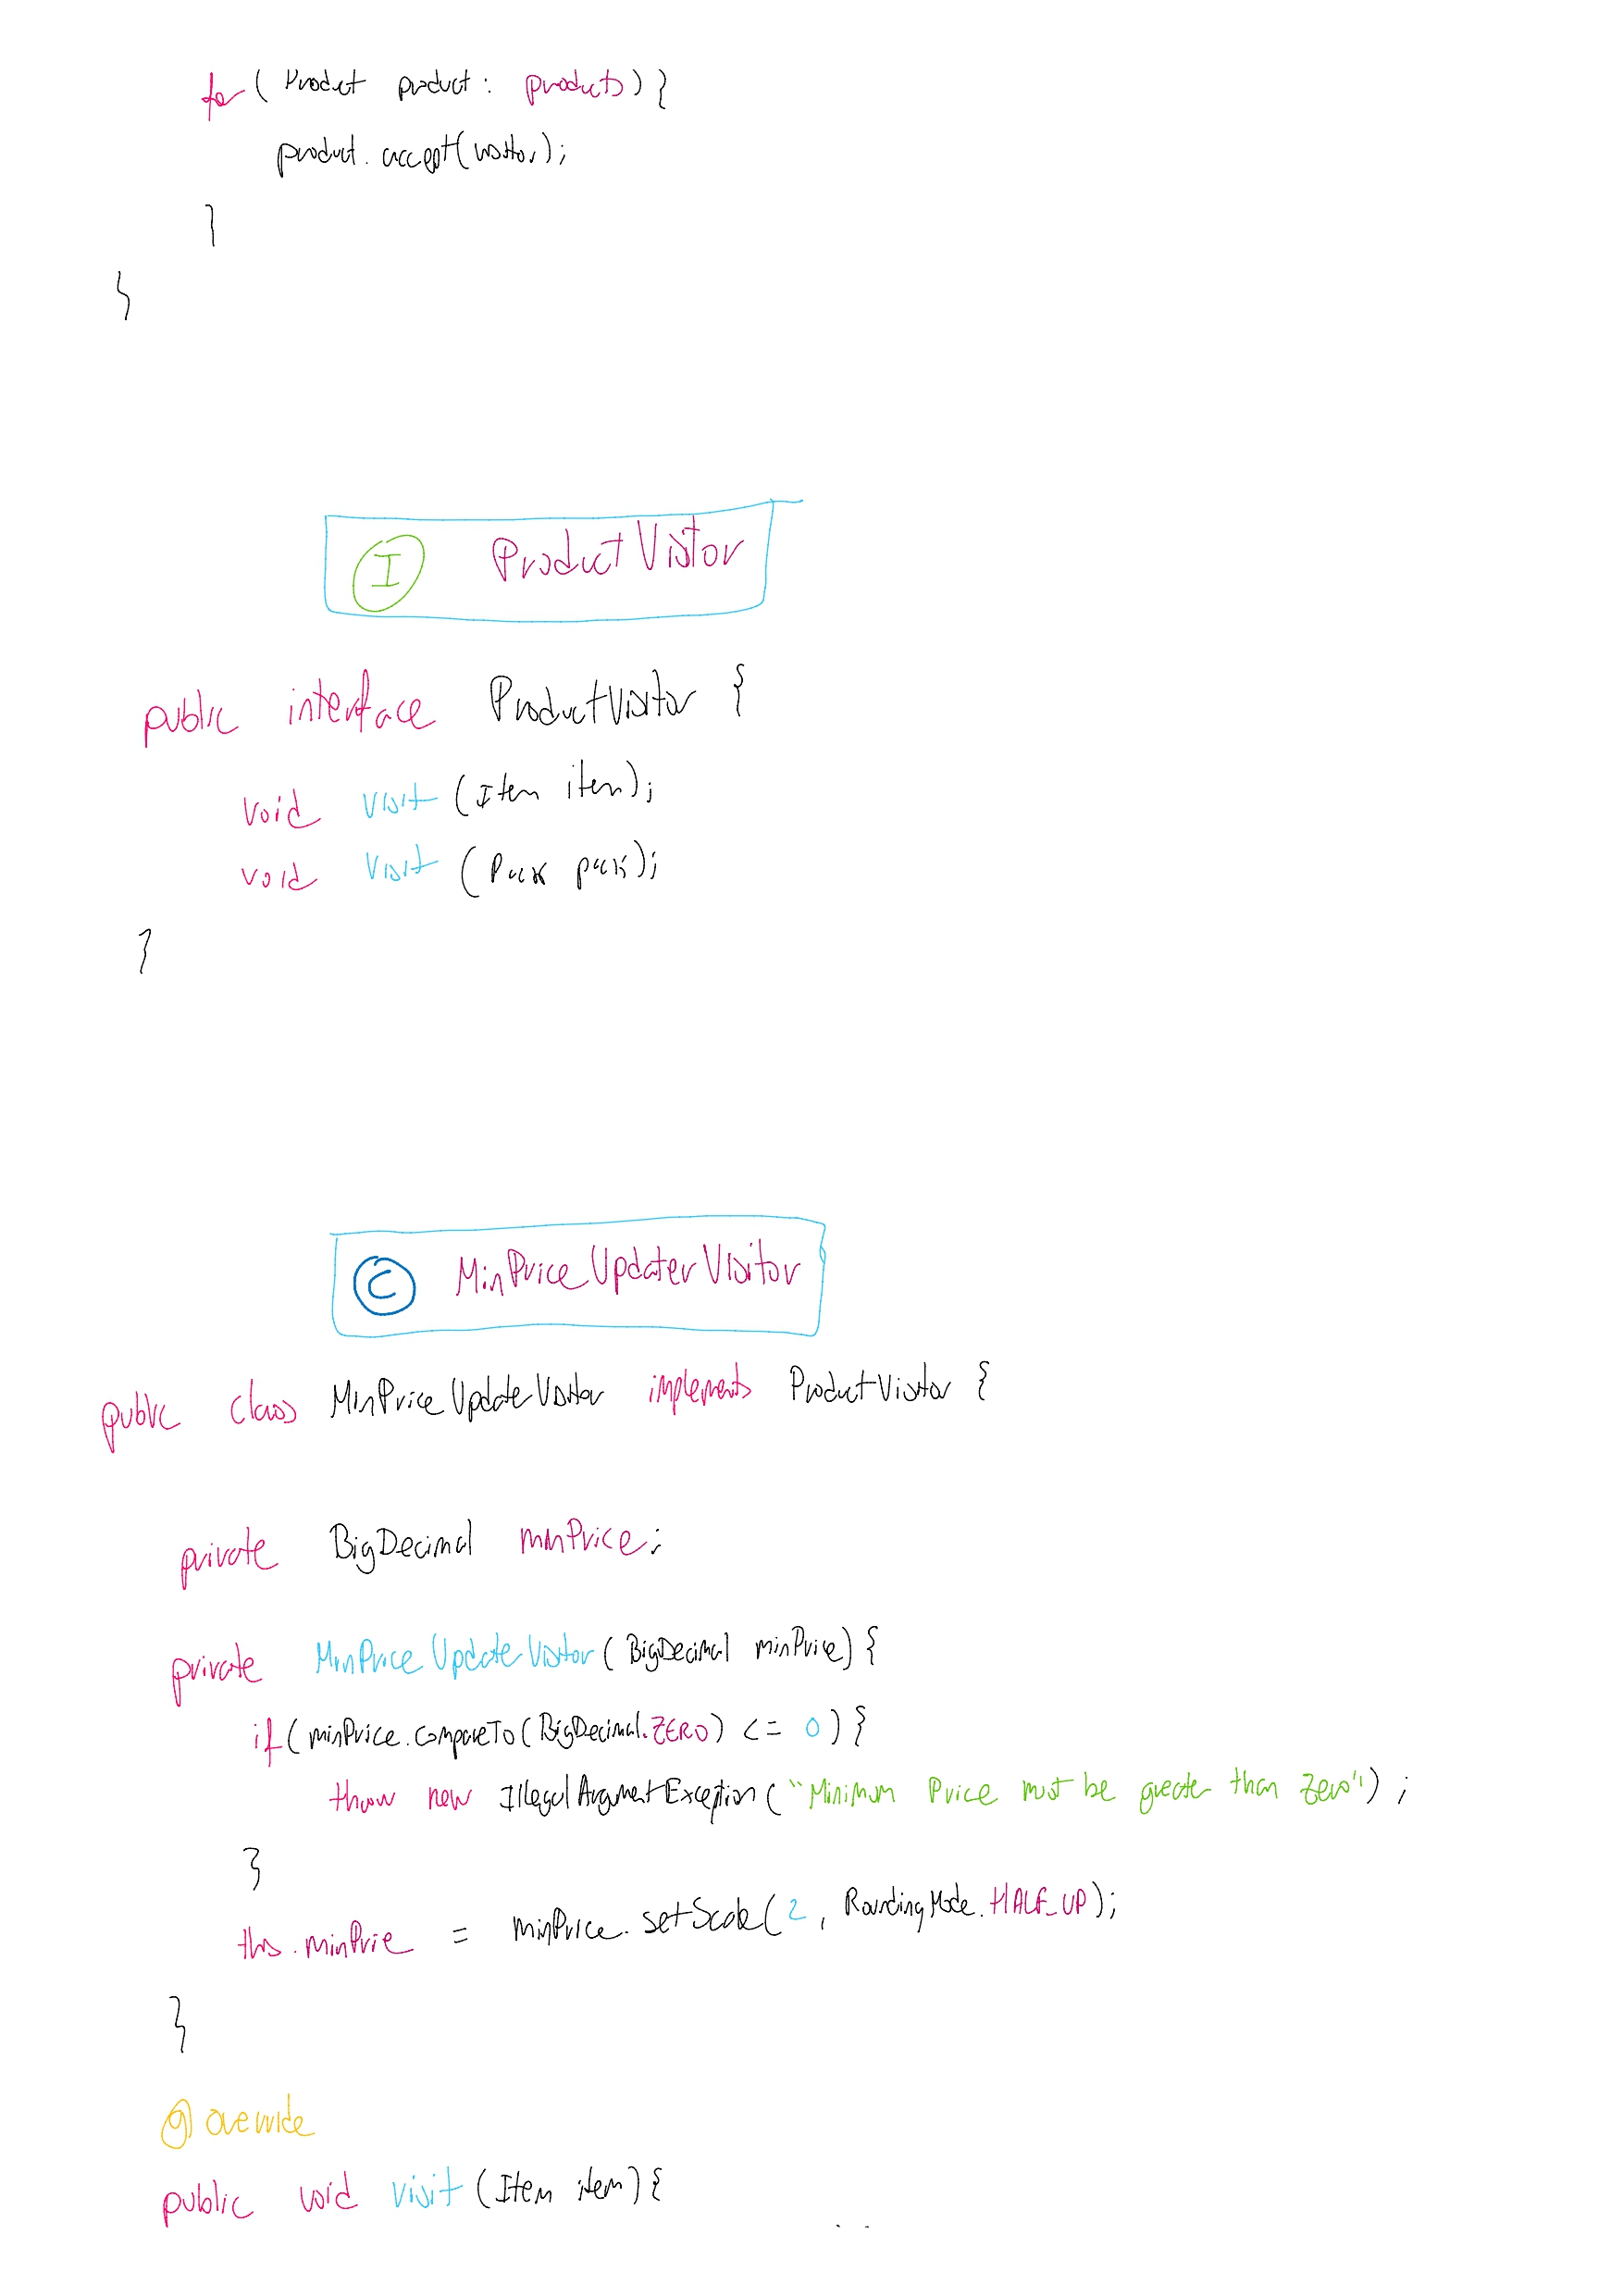 for( Product product : products) {
product.accept(visitor);
}
}
I ProductVisitor
public interface ProductVisitor {
void visit (Item item);
void visit (Pack pack);
}
C MinPriceUpdaterVisitor
public class MinPriceUpdateVisitor implements ProductVisitor {
private BigDecimal minPrice;
private MinPriceUpdateVisitor(BigDecimal minPrice) {
if(minPrice.compareTo(BigDecimal.ZERO) <= 0) {
throw new IllegalArgumentException("Minimum Price must be greater than Zero");
}
this.minPrie = minPrice.setScale(2, RoundingMode.HALF_UP);
}
@override
public void visit(Item item) {